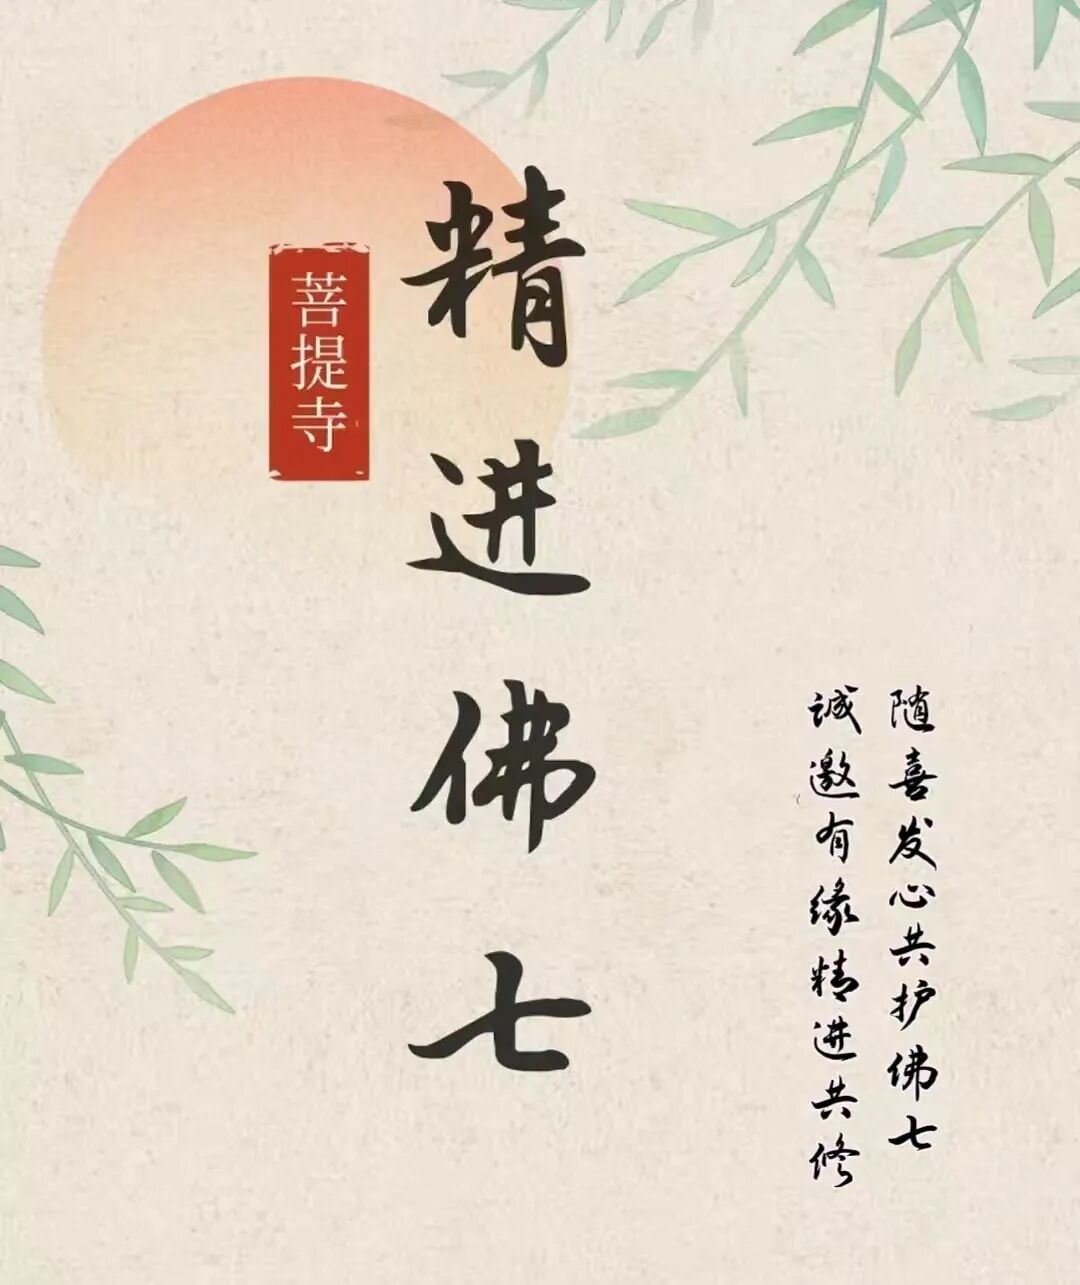 精进佛七
菩提寺
随喜发心共护佛七
诚邀有缘精进共修